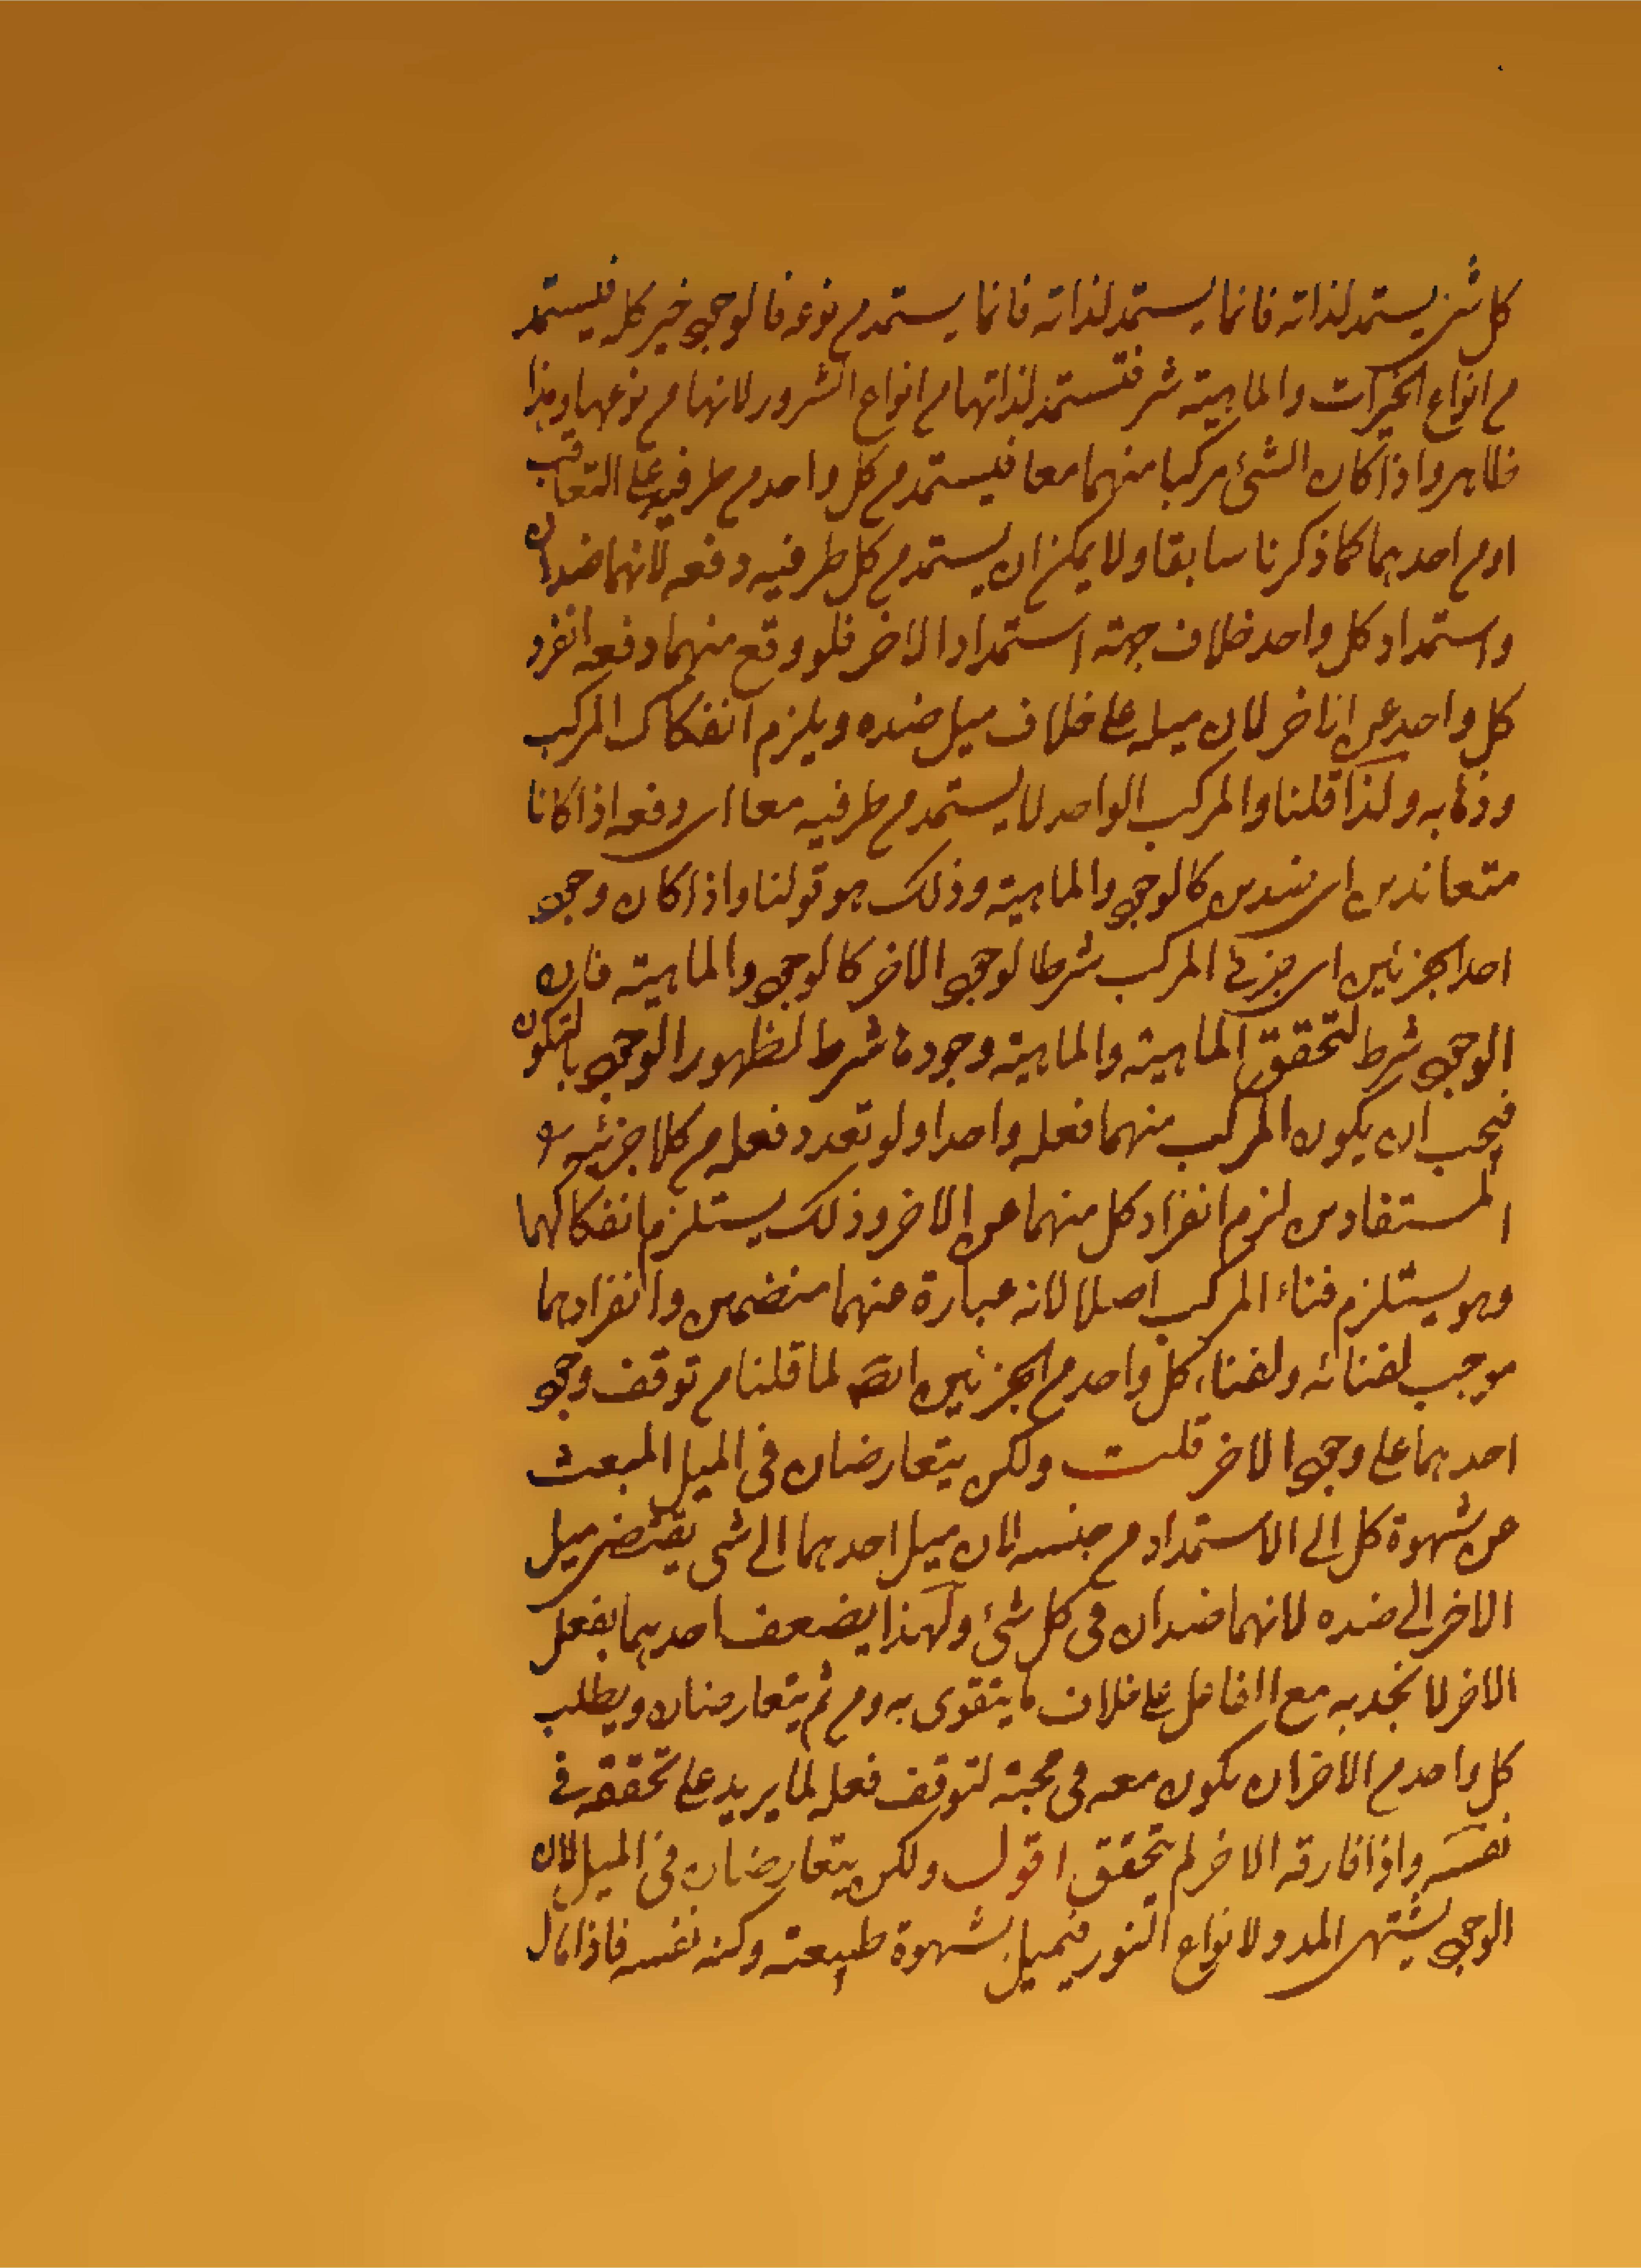 كل شئ يستمد لذاته فانما يستمد لذاته فانما يستمد م نوعه فالوجو خير كله فيستمد
م انواع الخيرات والماهية شر فتستمد لذاتها م انواع الشرور لانها م نوعها وهذا
ظاهر واذا كان الشئ مركبا منهما معا فيستمد م كل واحد م طرفيه على التعاقب
او م احدهما كما ذكرنا سابقا ولا يمكن ان يستمد م كل طرفيه دفعه لانهما ضدان
واستمداد كل واحد خلاف جهة استمداد الاخر فلو وقع منهما دفعه انفرد
كل واحد عن الاخر لان ميله على خلاف ميل ضده ويلزم انفكاك المركب
وذهابه ولذا قلنا والمركب الواحد لا يستمد م طرفيه معا اى دفعه اذا كانا
متعاندين اى ضدين كالوجو والماهية وذلك هو قولنا واذا كان وجو
احد الجزئين اى جزئى المركب شرطا لوجو الاخر كالوجو والماهية فان
الوجو شرط لتحقق الماهية والماهية وجودها شرط لظهور الوجو بالتكون
فيجب ان يكون المركب منهما فعله واحدا ولو تعدد فعله م كلا جزئيه
المتفادين لزم انفراد كل منهما عن الاخر وذلك يستلزم انفكاكهما
وهو يستلزم فناء المركب اصلا لانه عبارة عنهما منضمين وانفرادهما
موجب لفنائه ولفناء كل واحد م الجزئين ايضا لما قلنا م توقف وجو
احدهما على وجو الاخر قلت ولكن يتعارضان فى الميل المبعث
عن شهوة كل الى الاستمداد م جنسه لان ميل احدهما الى شى يقتضى ميل
الاخر الى ضده لانهما ضدان فى كل شئ ولهذا يضعف احدهما بفعل
الاخر لانجذبه مع الفاعل على خلاف ما يتقوى به وم ثم يتعارضان ويطلب
كل واحد م الاخر ان يكون معه فى محبة لتوقف فعله لما يريد على تحققه فى
نفسه واذا فارقه الاخر لم يتحقق اقول ولكن يتعارضان فى الميل لان
الوجو يشتهى المدد لانواع النور فيميل بشهوة طبيعته وكنه نفسه فاذا مال